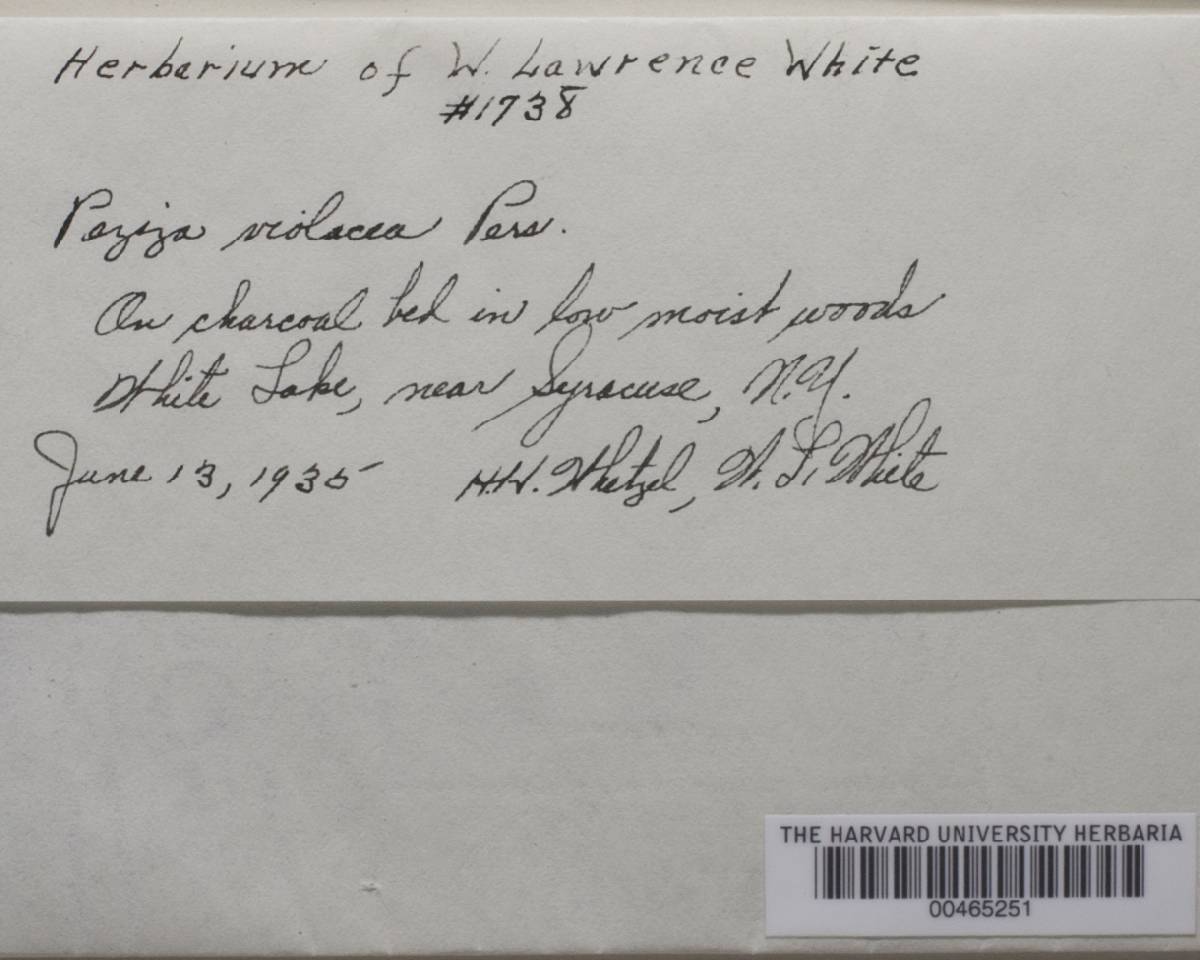 Herbarium of W. Lawrence White
#1738
Peziza violacea Pers.
On charcoal bed in low moist woods
White Lake, near Syracuse, N.Y.
June 13, 1935 H.H. Whetzel, W. L. White
THE HARVARD UNIVERSITY HERBARIA
00465251